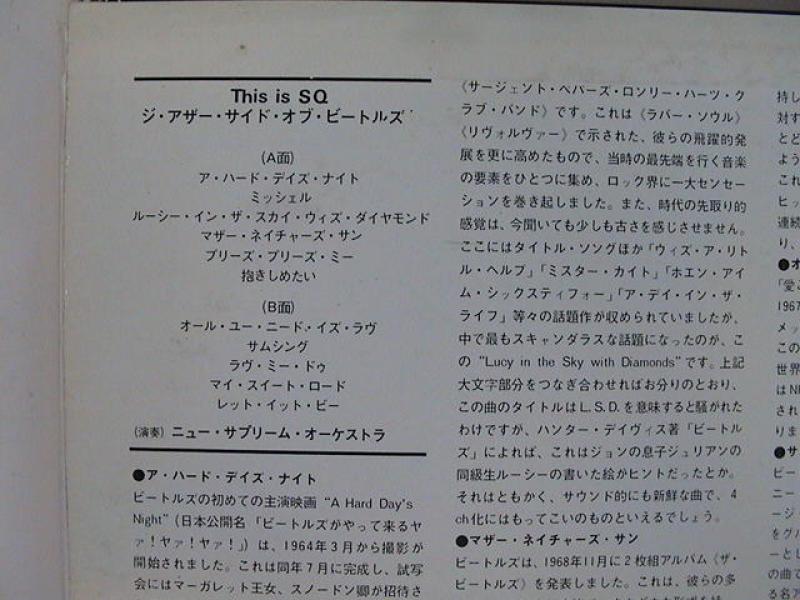 This is SQ
ジ・アザー・サイド・オブ・ビートルズ
(A面)
ア・ハード・デイズ・ナイト
ミッシェル
ルーシー・イン・ザ・スカイ・ウィズ・ダイヤモンド
マザー・ネイチャーズ・サン
プリーズ・プリーズ・ミー
抱きしめたい
(B面)
オール・ユー・ニード・イズ・ラヴ
サムシング
ラヴ・ミー・ドゥ
マイ・スイート・ロード
レット・イット・ビー
(演奏) ニュー・サプリーム・オーケストラ
●ア・ハード・デイズ・ナイト
ビートルズの初めての主演映画 “A Hard Day's
Night”(日本公開名「ビートルズがやって来るヤ
ァ!ヤァ!ヤァ!」)は、1964年3月から撮影が
開始されました。これは同年7月に完成し、試写
会にはマーガレット王女、スノードン卿が招待さ
《サージェント・ペパーズ・ロンリー・ハーツ・ク
ラブ・バンド》です。これは《ラバー・ソウル》
《リヴォルヴァー》で示された、彼らの飛躍的発
展を更に高めたもので、当時の最先端を行く音楽
の要素をひとつに集め、ロック界に一大センセー
ションを巻き起しました。また、時代の先取り的
感覚は、今聞いても少しも古さを感じさせません。
ここにはタイトル・ソングほか「ウィズ・ア・リト
ル・ヘルプ」「ミスター・カイト」「ホエン・アイ
ム・シックスティフォー」「ア・デイ・イン・ザ・
ライフ」等々の話題作が収められていましたが、
中で最もスキャンダラスな話題になったのが、こ
の “Lucy in the Sky with Diamonds” です。上記
大文字部分をつなぎ合わせればお分りのとおり、
この曲のタイトルはL.S.D.を意味すると騒がれた
わけですが、ハンター・デイヴィス著「ビートル
ズ」によれば、これはジョンの息子ジュリアンの
同級生ルーシーの書いた絵がヒントだったとか。
それはともかく、サウンド的にも新鮮な曲で、4
ch化にはもってこいのものといえるでしょう。
●マザー・ネイチャーズ・サン
ビートルズは、1968年11月に2枚組アルバム《ザ・
ビートルズ》を発表しました。これは、彼らの多
持し
対す
とど
よう
これ
ヒッ
連続
り、
●オ
「愛こ
1967
メッ
この
世界
はNH
され
りま
●サ
ビー
ニー
ージ
をグル
ーとし
の曲で
る名ア